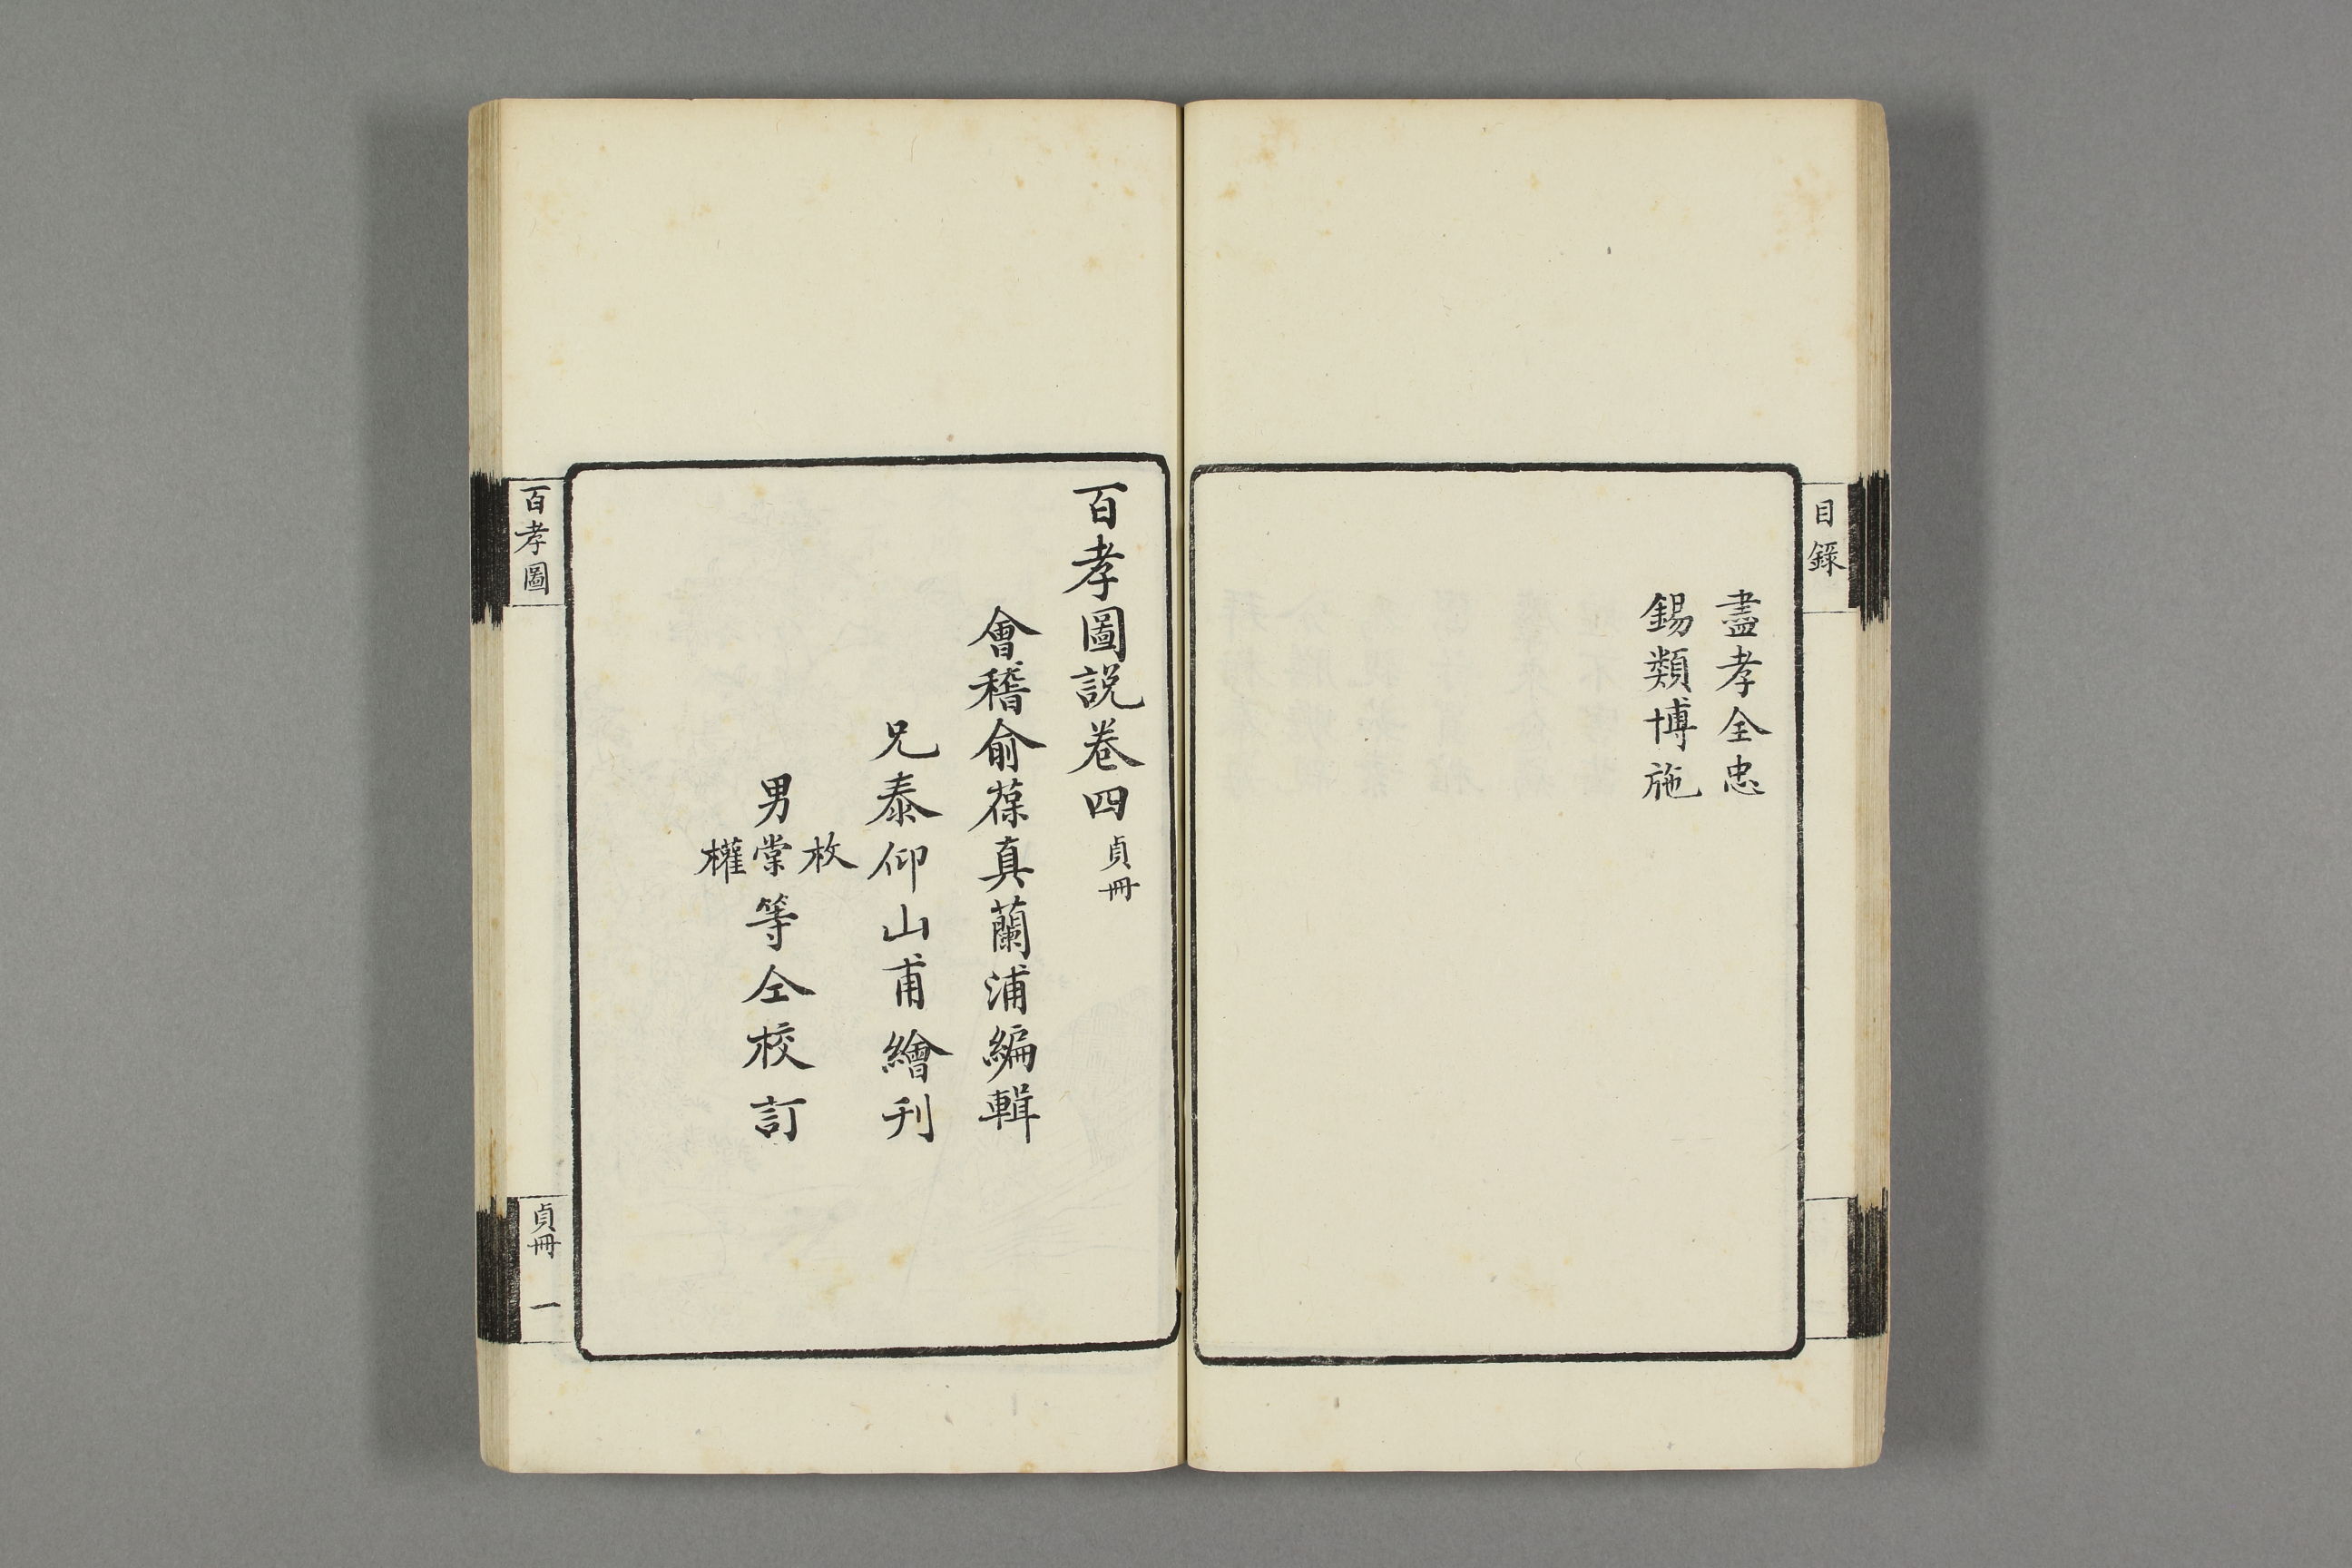 目錄
盡孝全忠
錫類博施
百孝圖說卷四 貞冊
會稽俞葆真蘭浦編輯
兄泰仰山甫繪刊
男枚棠權等仝校訂
百孝圖
貞冊 一